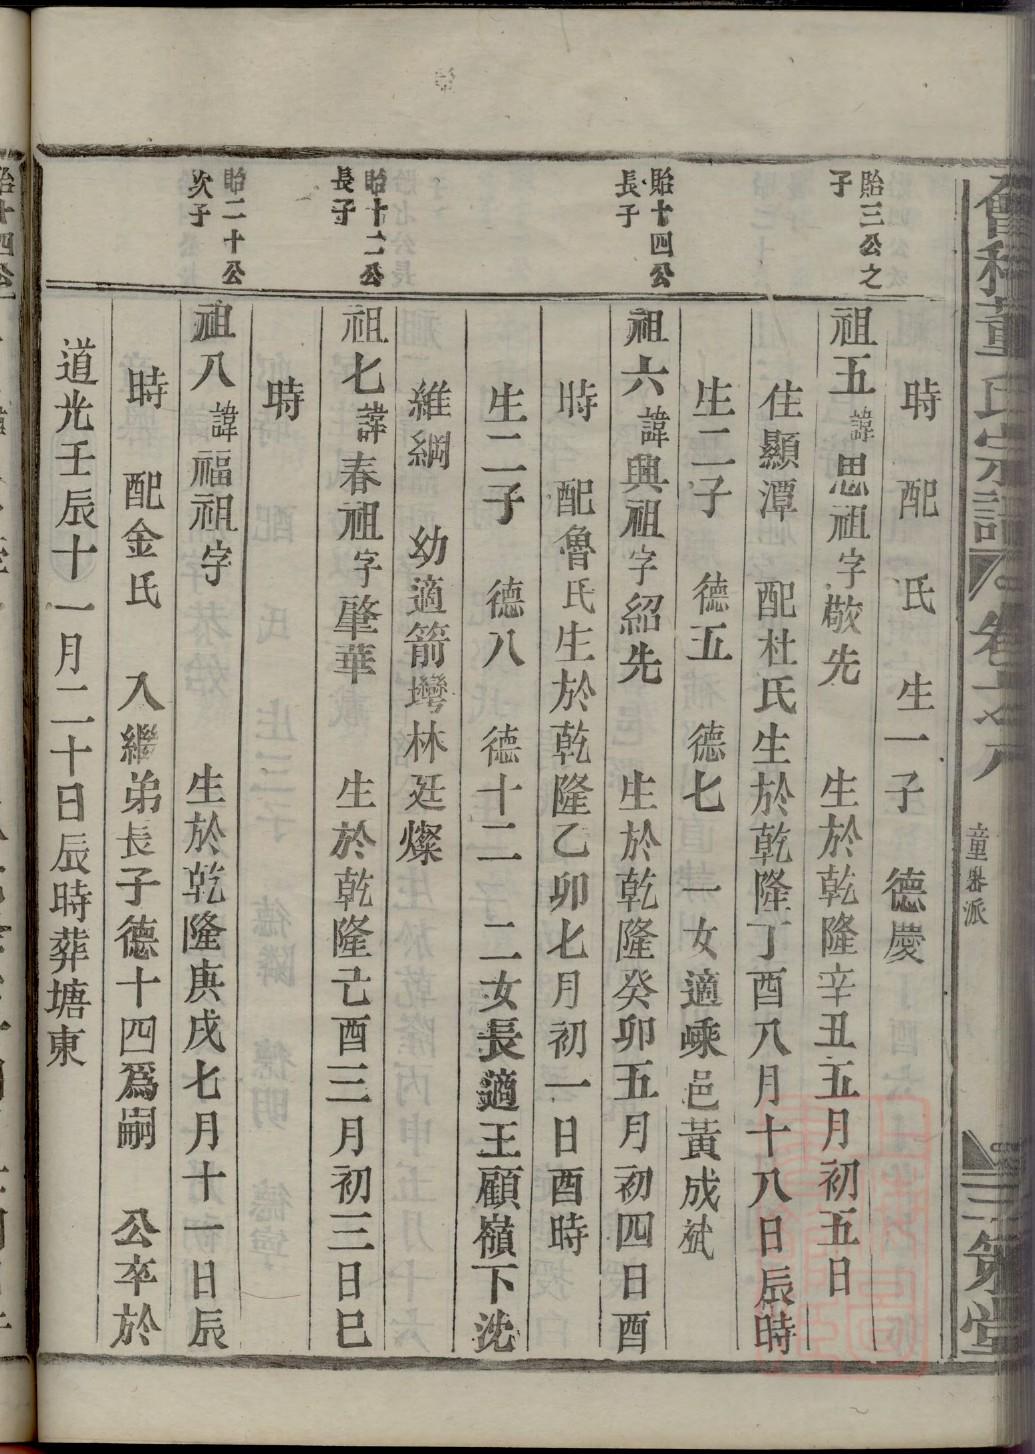 會稽董氏宗譜
卷
童嶴派
三策堂
時　配　氏　生一子　德慶
貽三公之
子
祖五諱思祖字敬先　生於乾隆辛丑五月初五日
住顯潭　配杜氏生於乾隆丁酉八月十八日辰時
生二子　德五　德七　一女適嵊邑黃成斌
貽十四公
長子
祖六諱興祖字紹先　生於乾隆癸卯五月初四日酉
時　配魯氏生於乾隆乙卯七月初一日酉時
生二子　德八　德十二　二女長適王顧嶺下沈
維綱　幼適箭灣林廷燦
貽十二公
長子
祖七諱春祖字肇華　生於乾隆己酉三月初三日巳
時
貽二十公
次子
祖八諱福祖字　生於乾隆庚戌七月十一日辰
時　配金氏　入繼弟長子德十四爲嗣　公卒於
道光壬辰十一月二十日辰時葬塘東